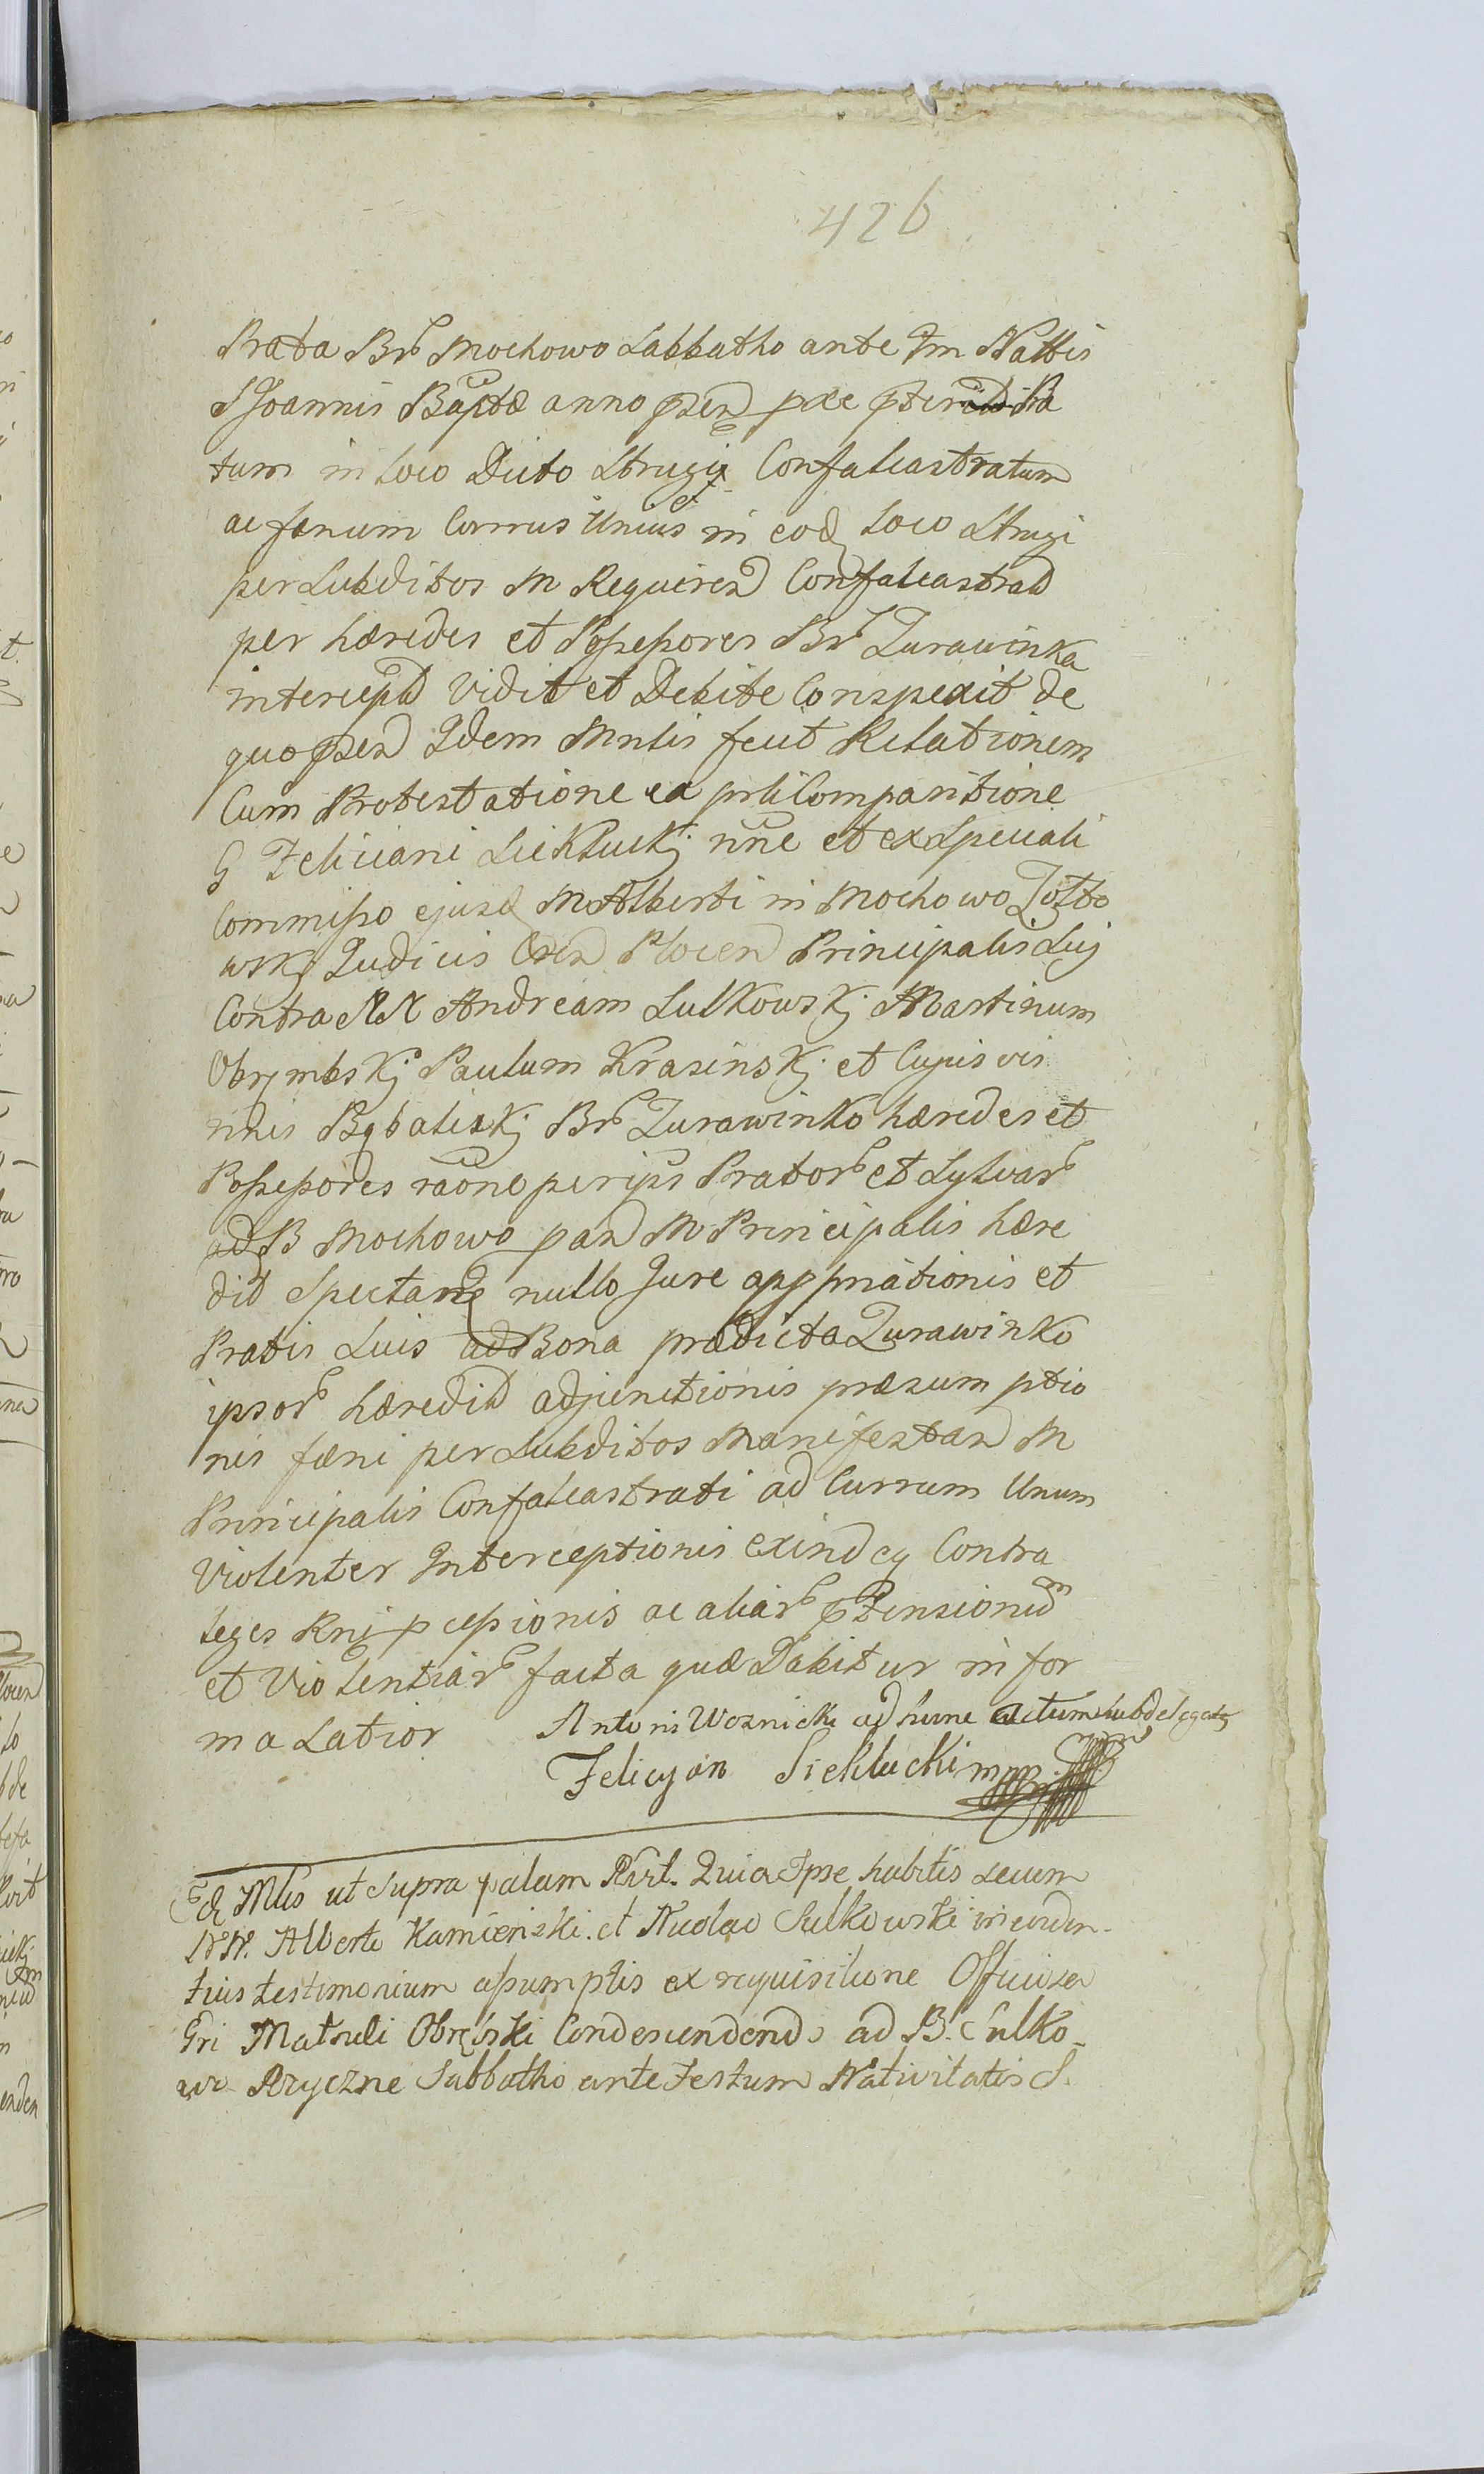 426
Prata Br Mochowo Sabbatho ante Fm Nattis
S Joannis Baptæ anno psen
tum in loco Dicto Strugi Confalcastratum
ac fænum Currus Unius in eod loco Strugi
per Subditos M Requiren Confalcastrat
per hæredes et Possessores Br Zurawinka
intercept Vidit et Debite Conspexit de
quo psen Idem Mntis fecit Relationem
Cum Protestatione ea prli Comparitione
G Feliciani Siekluckj nne et ex Speciali
Commisso ejusd M Alberti in Mochowo
wskj Judicis Plocen Principalis Suj
Contra NN Andream Sulkowskj Martinum
Obrembskj Paulum Krasinskj et Cujusvis
nnis Br Zurawinko hæredes et
Possessores raone per ipsos Prator et Sylvar
ad B Mochowo pan M Principalis hære
dit Spectan nullo Jure apppriationis et
Pratis Suis ad Bona prædicta Zurawinko
ipsor hæredit adjunctionis præsumptio
nis fæni per Subditos Manifestan M
Principalis Confalcastrati ad Currum Unum
Violenter Interceptionis exindeq Contra
leges Rni pcessionis ac aliar
et Violentiar facta quæ Dabitur in for
ma Latior Antoni Woznicki ad hunc actum subdelegatus
Felicyan Sieklucki mpp
Id Mtis ut supra palam Rvt. Quia Ipse habitis secum
NN. Alberto Kamienski. et Nicolao Sulkowski in eviden-
tius testimonium assumptis ex requisitione Officiosa
Gri Obrębski Condescendendo ad B. Sulko-
wo Rzyczne Sabbatho ante Festum Nativitatis S.